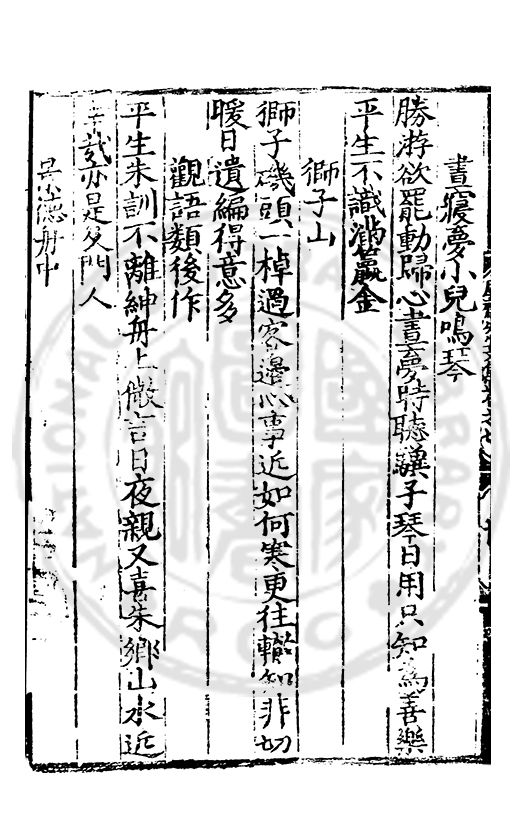 晝寢夢小兒鳴琴
勝游欲罷動歸心晝夢時聽驥子琴日用只知為善樂
平生不識滿籯金
獅子山
獅子磯頭一棹過客邊心事近如何寒更往轍知非切
暖日遺編得意多
觀語類後作
平生朱訓不離紳舟上微言日夜親又喜朱鄉山水近
千載亦是及門人
景德舟中